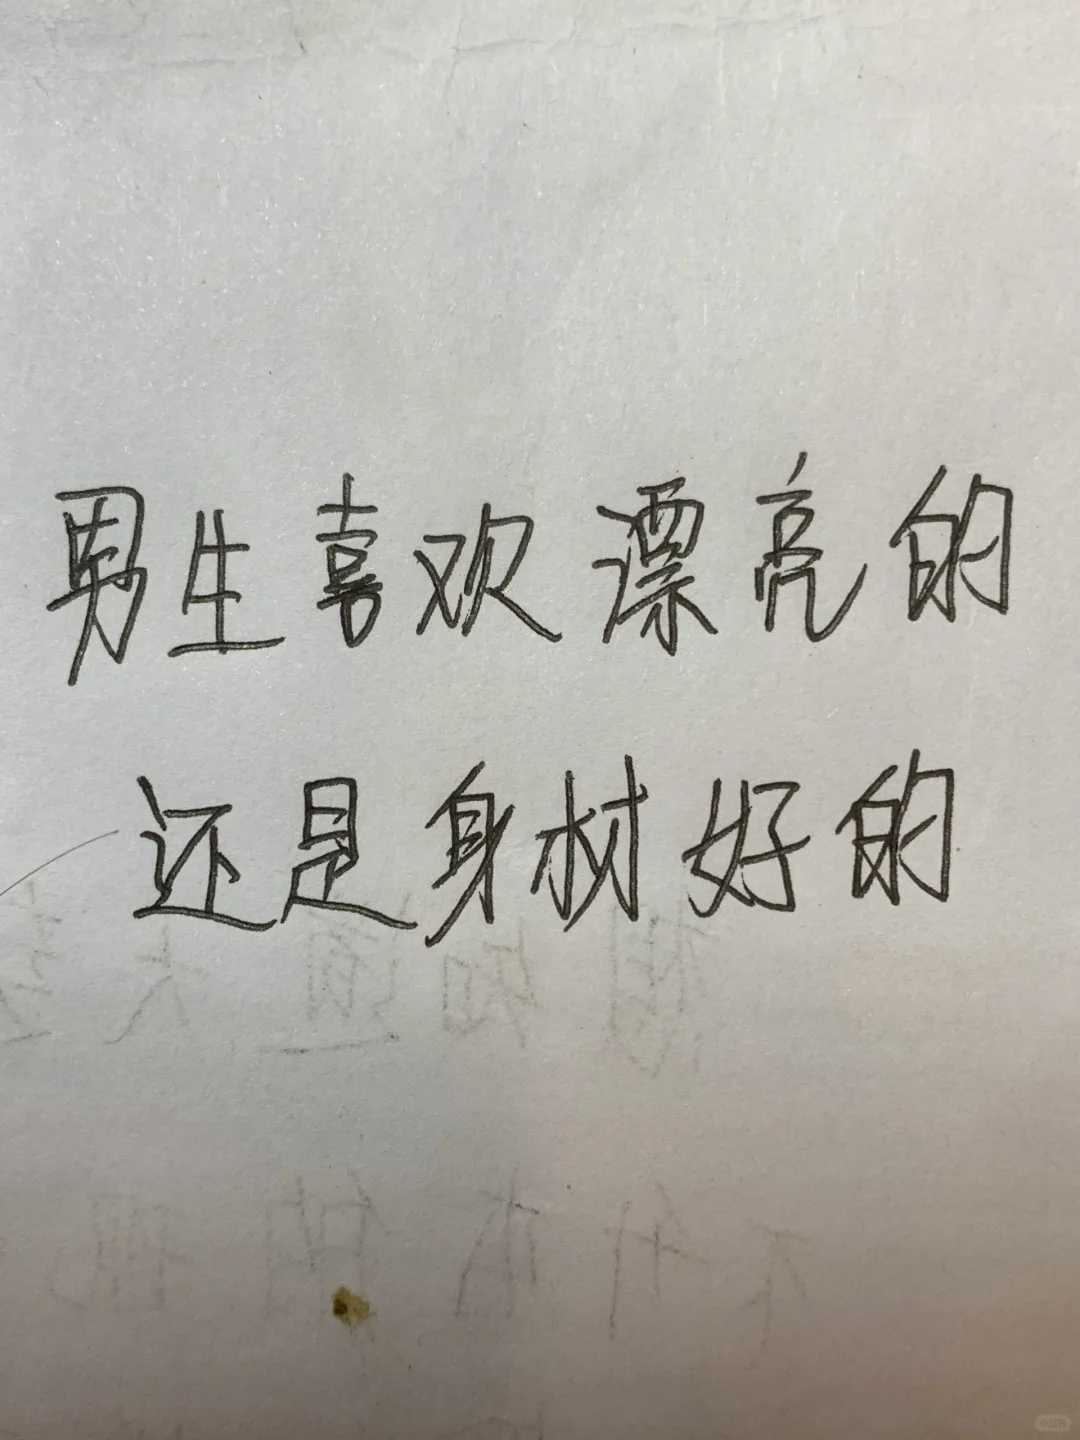 男生喜欢漂亮的
还是身材好的